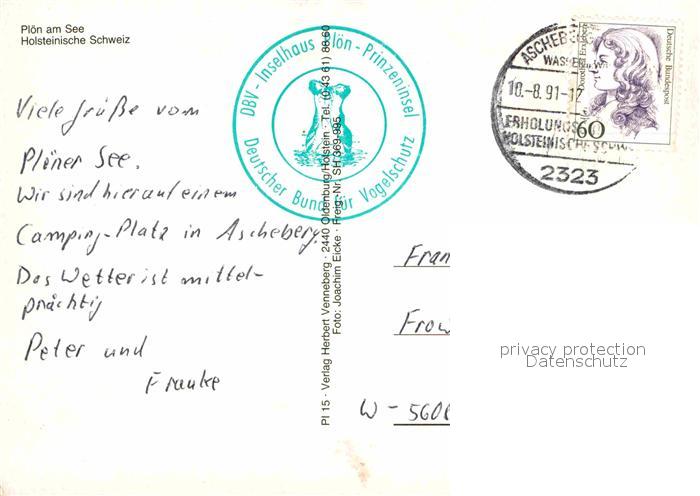 Plön am See
Holsteinische Schweiz
Viele Grüße vom
Plöner See.
Wir sind hier auf einem
Camping-Platz in Ascheberg.
Das Wetter ist mittel-
prächtig
Peter und
Frauke
DBV - Inselhaus Plön - Prinzeninsel
Deutscher Bund für Vogelschutz
Pl 15 · Verlag Herbert Venneberg · 2440 Oldenburg/Holstein · Tel. (0 43 61) 88 60
Foto: Joachim Eicke · Freig.-Nr. SH 369-995
ASCHEBE
WASSER
10.-8.91-12
ERHOLUNGS
HOLSTEINISCHE SCHW
2323
60
Deutsche Bundespost
Fran
W - 560
privacy protection
Datenschutz